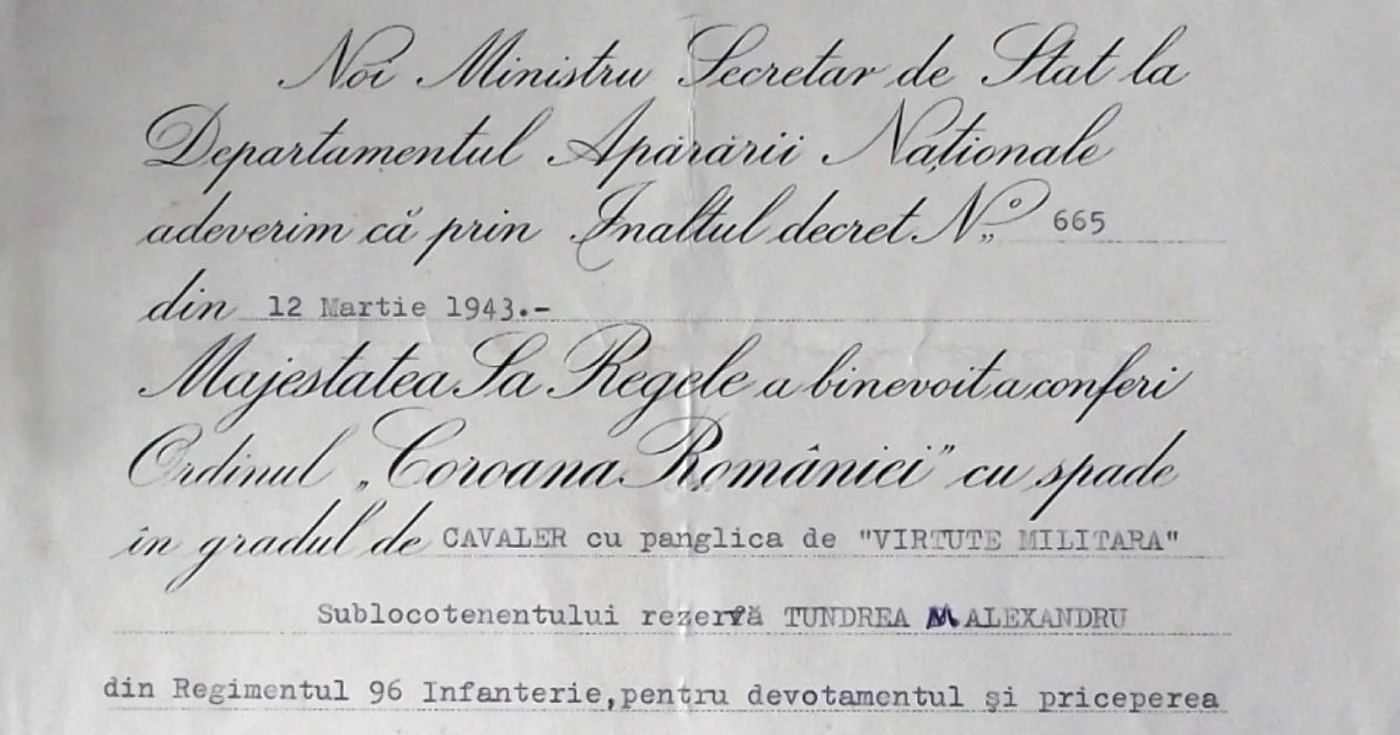 Noi Ministru Secretar de Stat la
Departamentul Apărării Naționale
adeverim că prin Inaltul decret Nº 665
din 12 Martie 1943.-
Majestatea Sa Regele a binevoit a conferi
Ordinul „Coroana României” cu spade
în gradul de CAVALER cu panglica de "VIRTUTE MILITARA"
Sublocotenentului rezervă TUNDREA M ALEXANDRU
din Regimentul 96 Infanterie,pentru devotamentul și priceperea